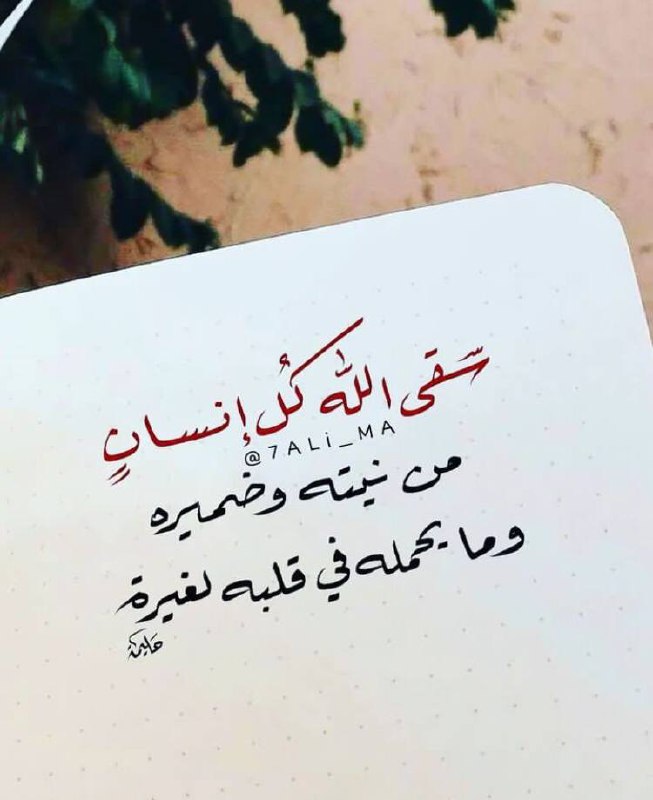 سَقى الله كُل إنسانٍ
@7ALi_MA
من نيته وضميره
وما يحمله في قلبه لغيرة
حليمة